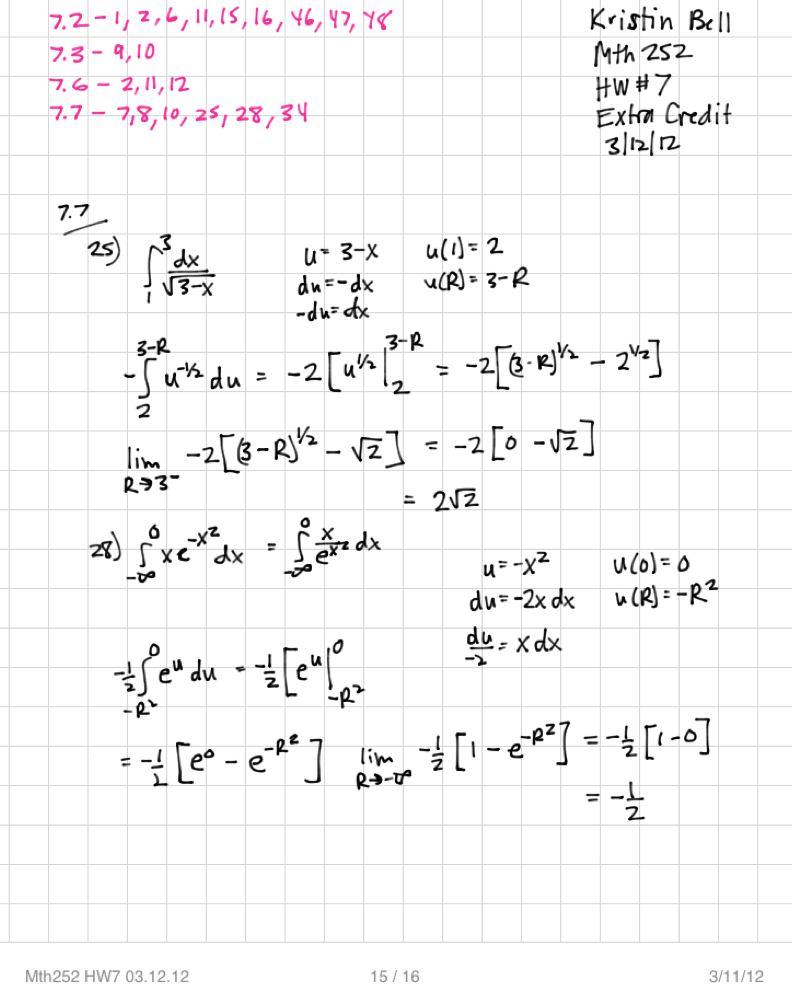 7.2 - 1, 2, 6, 11, 15, 16, 46, 47, 48
7.3 - 9, 10
7.6 - 2, 11, 12
7.7 - 7, 8, 10, 25, 28, 34
Kristin Bell
Mth 252
HW #7
Extra Credit
3/12/12
7.7
25) ∫₁³ dx/√(3-x)
u = 3-x
du = -dx
-du = dx
u(1) = 2
u(R) = 3-R
-∫₂^(3-R) u^(-1/2) du = -2[u^(1/2)|₂^(3-R) = -2[(3-R)^(1/2) - 2^(1/2)]
lim R→3⁻ -2[(3-R)^(1/2) - √2] = -2[0 - √2]
= 2√2
28) ∫_(-∞)^0 xe^(-x²) dx = ∫_(-∞)^0 x/e^(x²) dx
u = -x²
du = -2x dx
du/-2 = x dx
u(0) = 0
u(R) = -R²
-1/2 ∫_(-R²)^0 e^u du = -1/2 [e^u|_(-R²)^0
= -1/2 [e^0 - e^(-R²)] lim R→-∞ -1/2 [1 - e^(-R²)] = -1/2 [1-0]
= -1/2
Mth252 HW7 03.12.12
15 / 16
3/11/12